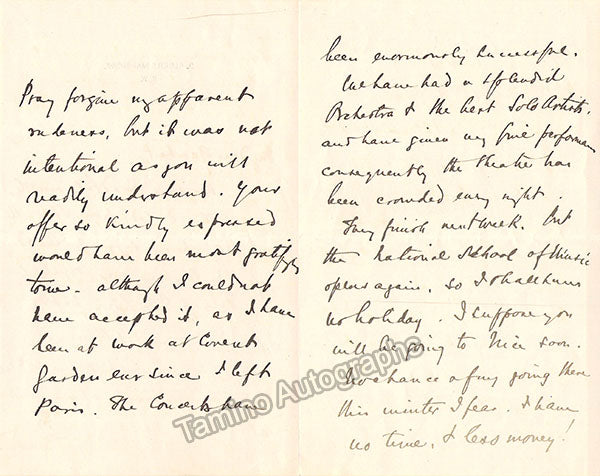 Pray forgive my apparent
rudeness, but it was not
intentional as you will
readily understand. Your
offer so kindly expressed
would have been most gratifying
to me – although I could not
have accepted it, as I have
been at work at Covent
Garden ever since I left
Paris. The Concerts have
been enormously successful.
We have had a splendid
Orchestra & the best Solo Artists.
and have given very fine performances
consequently the theatre has
been crowded every night.
They finish next week. But
the National School of Music
opens again, so I shall have
no holiday. I suppose you
will be going to Nice soon.
No chance of my going there
this winter I fear. I have
no time, & less money!
Tamino Autographs